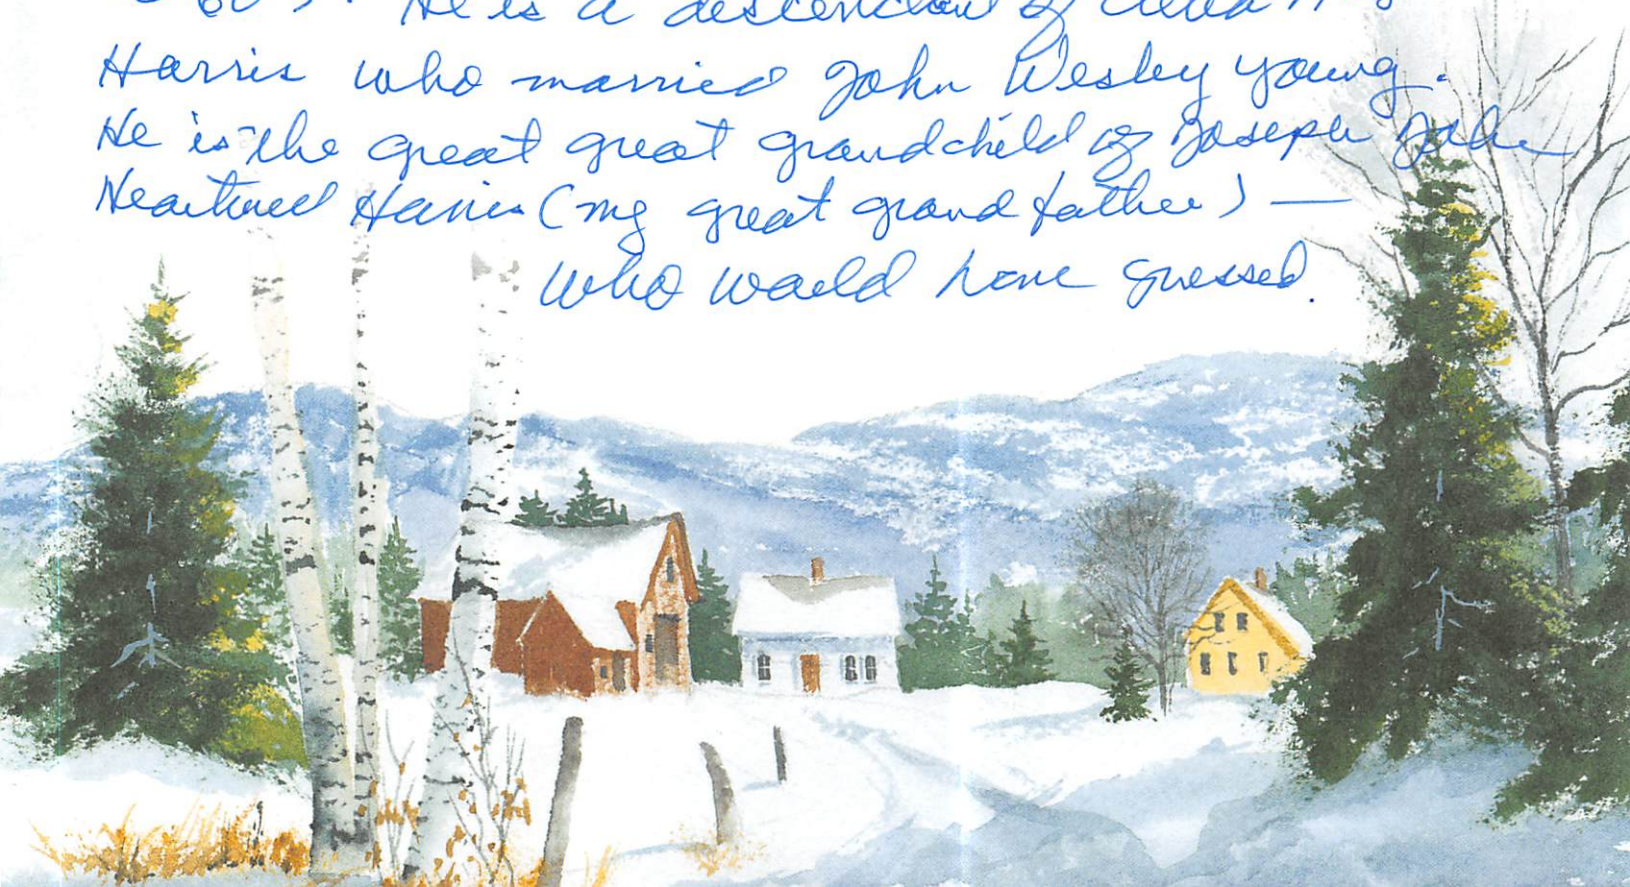 He is a descendant of
Harris who married John Wesley Young.
He is the great great grandchild of Joseph John
Harris (my great grandfather) —
who would have guessed.